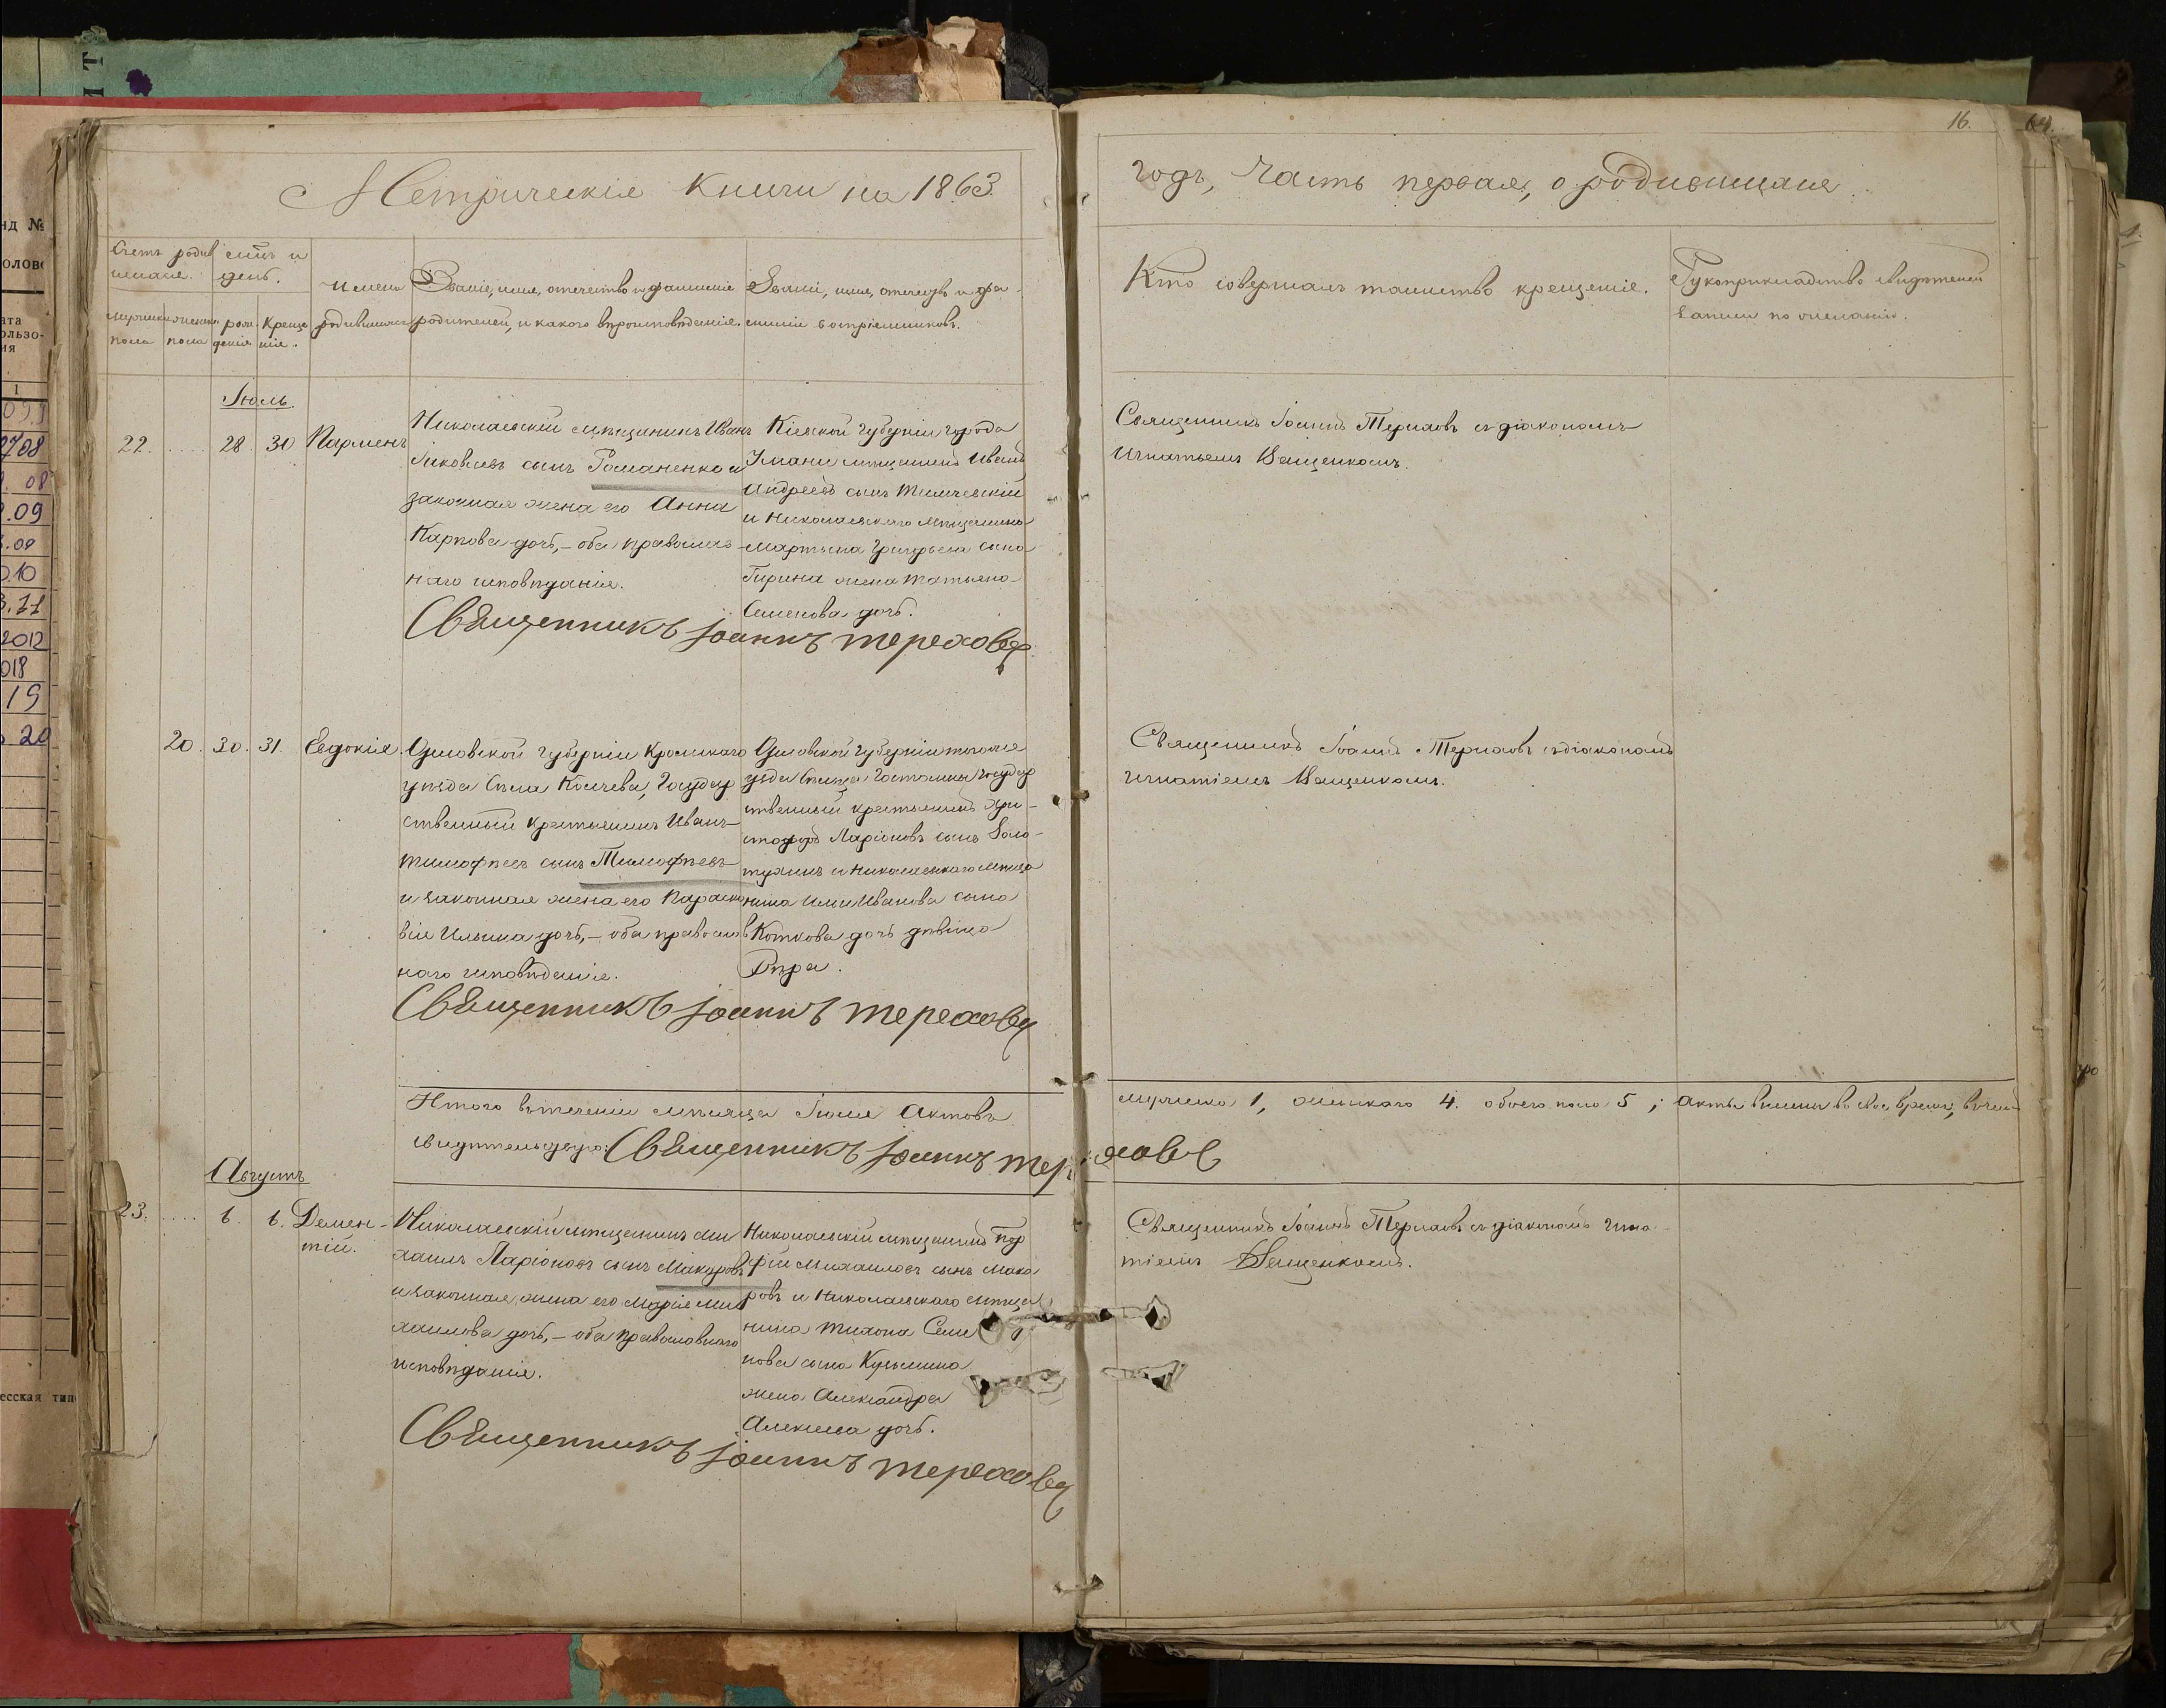 Метрическія Книги на 1863.
годъ, Часть первая, о родившихся
16.
64.
Счетъ родив
шихся.
день.
мужеска
пола
женска
пола
рож
денія
креще
нія.
Имена
родившихся
Званіе, имя, отечество и фамилія
родителей, и какого вѣроисповѣданія.
Званіе, имя, отечество и фа-
милія воспріемниковъ.
Кто совершалъ таинство крещенія.
Рукоприкладство свидѣтелей
записи по желанію.
Іюль.
22. 28. 30 Парменъ
Николаевскій мѣщанинъ Иванъ
Яковлевъ сынъ Романенко и
законная жена его Анна
Карпова дочь,- оба православ-
наго исповѣданія.
Кіевской Губерніи города
Умани мѣщанинъ Иванъ
Андреевъ сынъ
и Николаевскаго мѣщанина
Мартына Григорьева сына
Гирина жена Татьяна
Семенова дочь.
Священникъ Іоаннъ Тереховъ
Священникъ Іоаннъ Тереховъ съ діакономъ
Игнатіемъ Ващенкомъ.
20. 30. 31. Евдокія.
Орловской губерніи Кромскаго
уѣзда Села Государ
ственный крестьянинъ Иванъ
Тимофѣевъ сынъ Тимофѣевъ
и законная жена его Параске
вія Ильина дочь,- оба православ
наго исповѣданія.
Орловской губерніи тогоже
уѣзда Гостомли Государ
ственный крестьянинъ Хри-
стофоръ Ларіоновъ сынъ Золо-
тухинъ и Николаевскаго мѣща
нина Ильи Иванова сына
Коткова дочь дѣвица
Вѣра.
Священникъ Іоаннъ Тереховъ
Священникъ Іоаннъ Тереховъ съ діакономъ
Игнатіемъ Ващенкомъ.
Итого въ теченіи мѣсяца Іюля Актовъ
мужеска 1, женскаго 4. обоего пола 5; акты писаны во свое время, въ чемъ
свидѣтельствую: Священникъ Іоаннъ Тереховъ
Августъ
23. 6. 6. Демен-
тій.
Николаевскій мѣщанинъ Ми
хаилъ Ларіоновъ сынъ Макаровъ
и законная жена его Марія Ми
хаилова дочь,- оба православнаго
исповѣданія.
Николаевскій мѣщанинъ Пор
фирій Михаиловъ сынъ Мака
ровъ и Николаевскаго мѣща
нина Тихона Семе
нова сына Кузьмина
жена Александра
Алексѣева дочь.
Священникъ Іоаннъ Тереховъ
Священникъ Іоаннъ Тереховъ съ діакономъ Игна-
тіемъ Ващенкомъ.